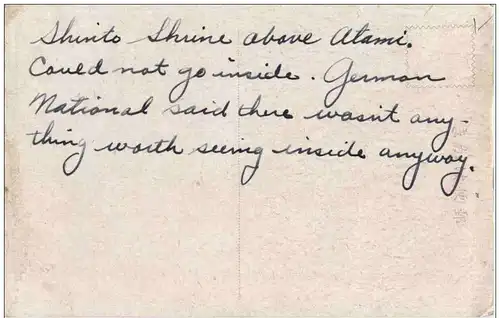 Shinto Shrine above Atami.
Could not go inside. German
National said there wasn't any-
thing worth seeing inside anyway.